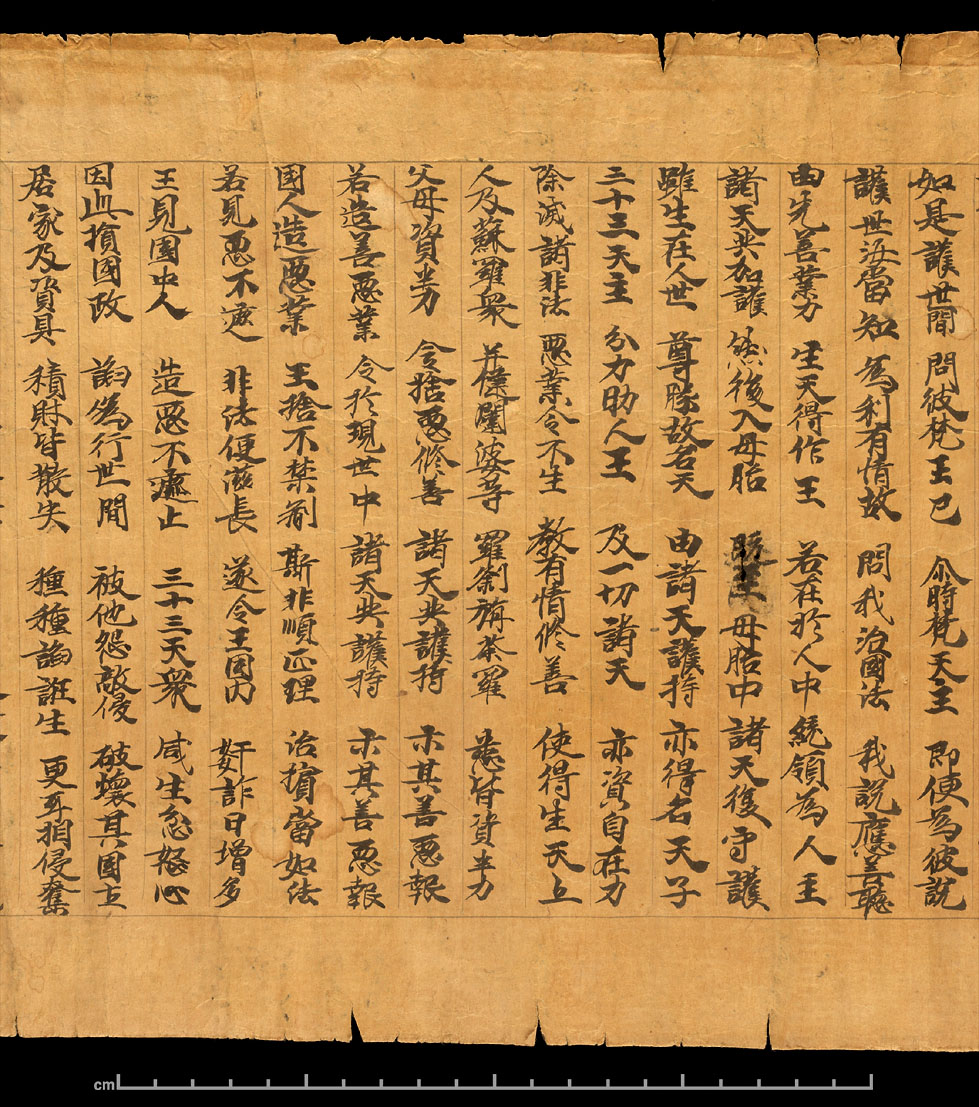 如是護世間 問彼梵王已 尒時梵天主 即便為彼說
護世海當知 為利有情故 問我治國法 我說應善聽
由先善業力 生天得作王 若在於人中 統領為人主
諸天共加護 然後入母胎 母胎中 諸天復守護
雖生在人世 尊勝故名天 由諸天護持 亦得名天子
三十三天主 分力助人王 及一切諸天 亦資自在力
除滅諸非法 惡業令不生 教有情修善 使得生天上
人及蘇羅眾 并健闥婆等 羅剎旃荼羅 悉皆資半力
父母資半力 令捨惡修善 諸天共護持 示其善惡報
若造善惡業 令於現世中 諸天共護持 示其善惡報
國人造惡業 王捨不禁制 斯非順正理 治擯當如法
若見惡不遮 非法便滋長 遂令王國內 奸詐日增多
王見國中人 造惡不遮止 三十三天眾 咸生忿怒心
因此損國政 諂偽行世間 被他怨敵侵 破壞其國土
居家及資具 積財皆散失 種種諂誑生 更互相侵奪
cm